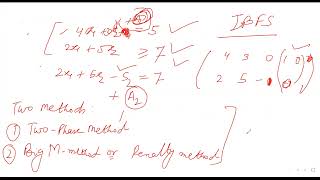 IBFS
= 5
2x₁ + 5x₂ ≥ 7
2x₁ + 5x₂ - S₂ = 7
+ A₂
4 3 0 1 0
2 5 -1 0
Two methods:
① Two-Phase Method
② Big M-method or Penalty method